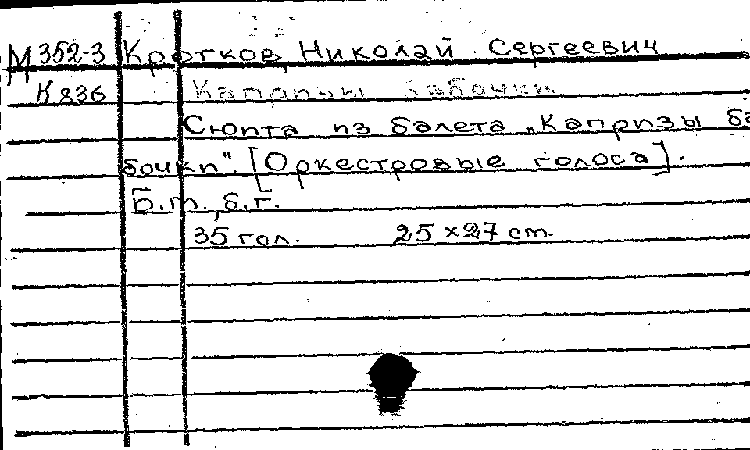 М 352-3 Кротков, Николай Сергеевич
К 836 Капризы бабочки
Сюита из балета „Капризы ба
бочки". [Оркестровые голоса].
Б.м., б.г.
35 гол. 25 x 27 cm.